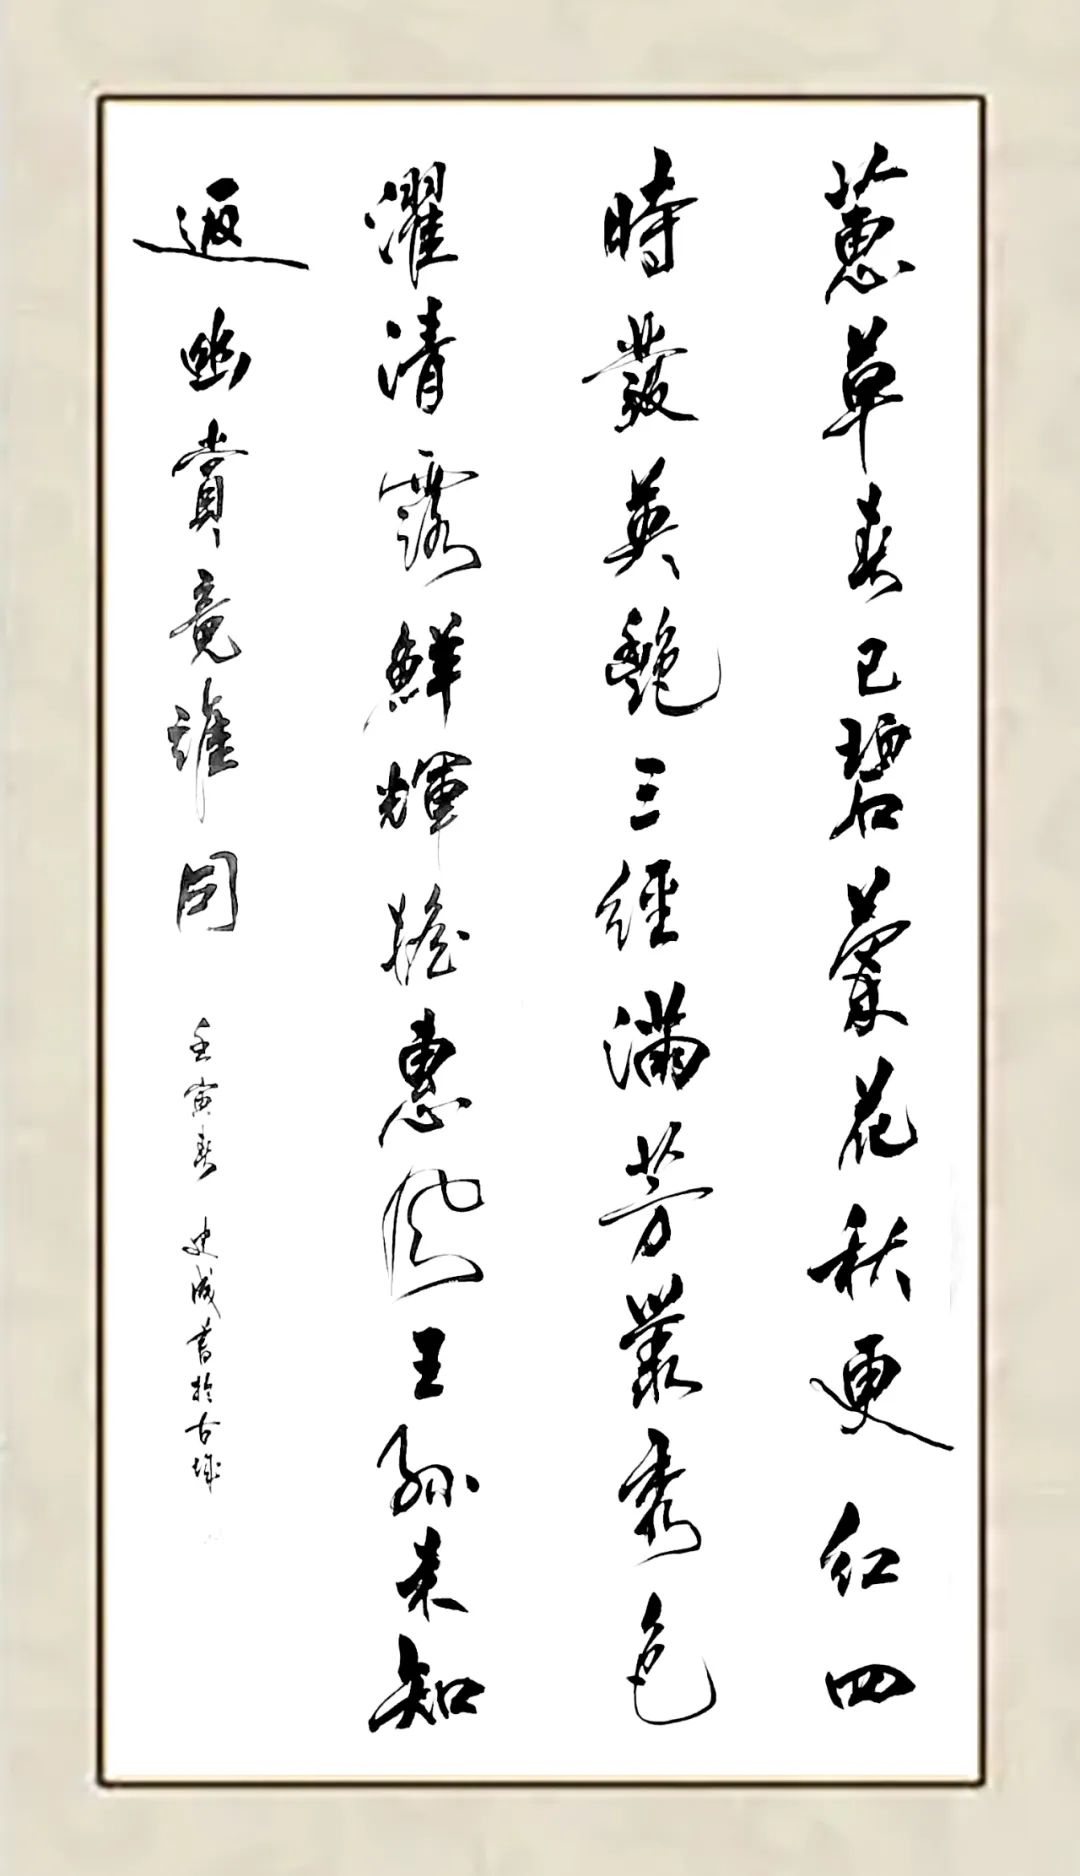 蕙草春已碧蘭花秋更紅四
時發英艷三經滿芳叢秀色
濯清露鮮輝搖惠風王孫未知
返幽賞竟誰同 壬寅春 史成書於古城